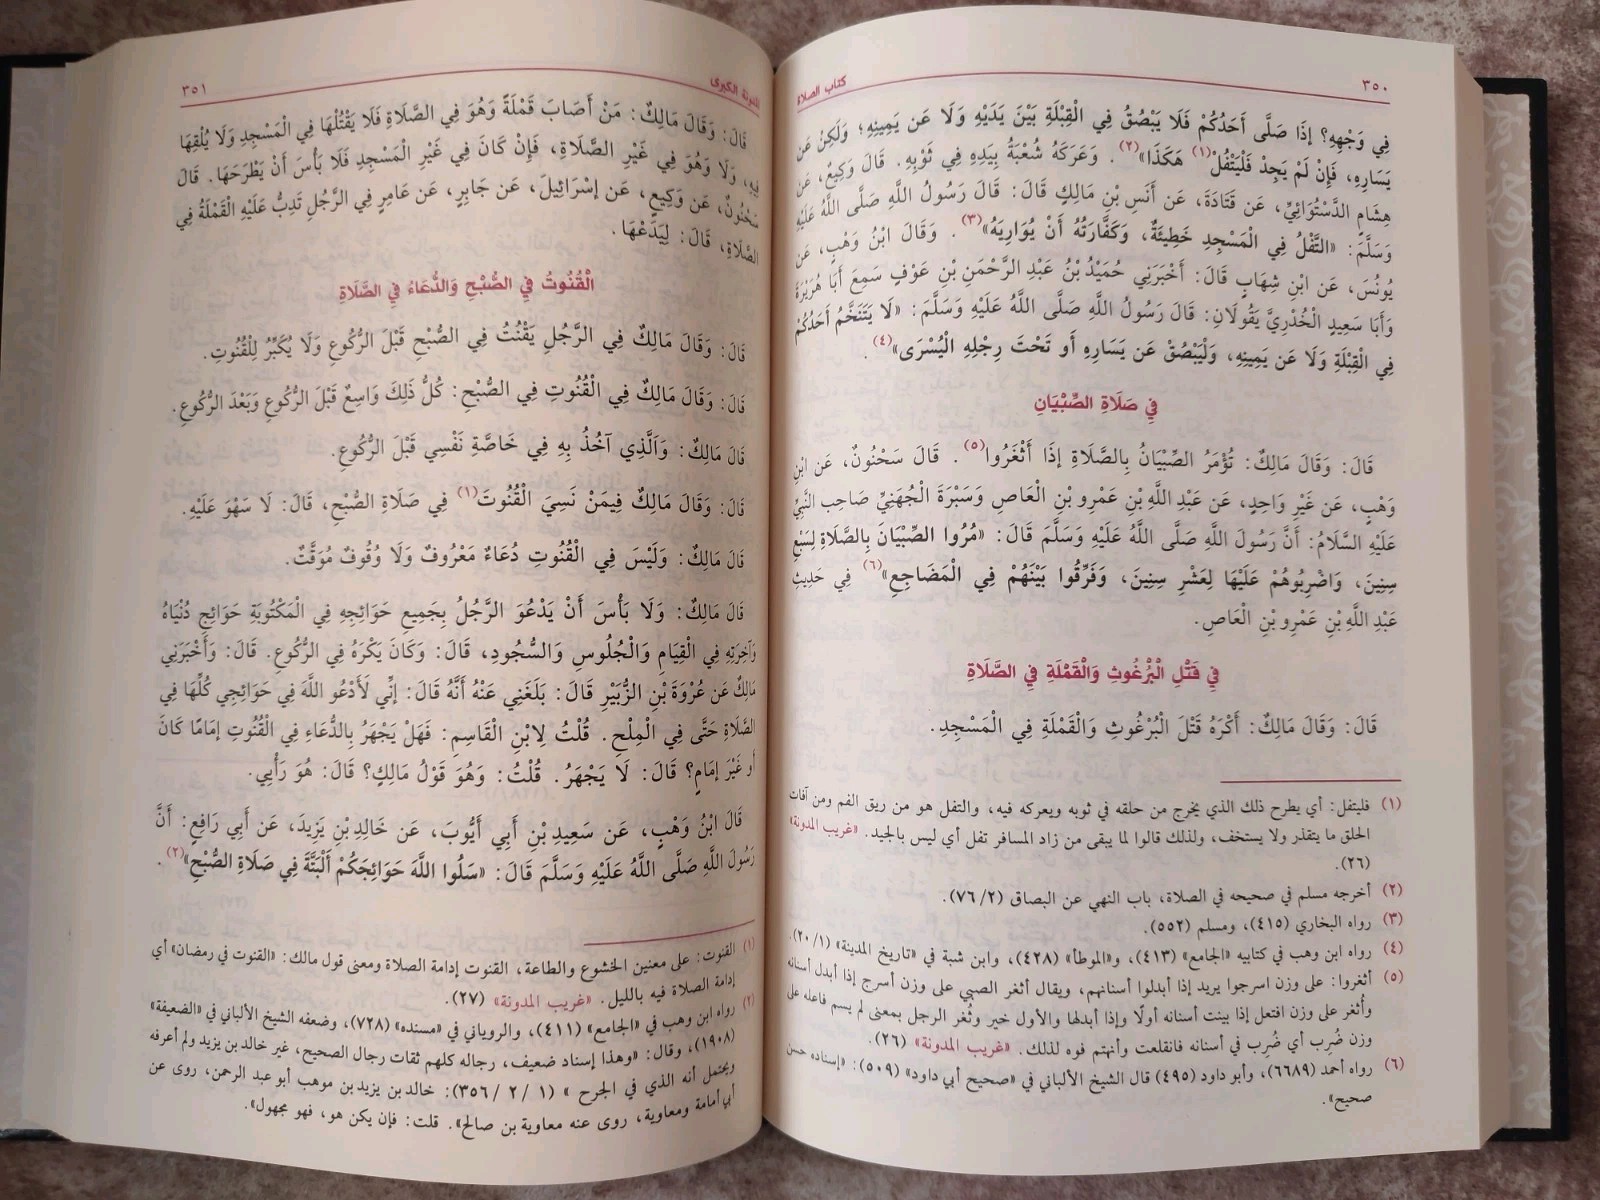 ٣٥٠
كتاب الصلاة
فِي وَجْهِهِ؟ إِذَا صَلَّى أَحَدُكُمْ فَلَا يَبْصُقْ فِي الْقِبْلَةِ بَيْنَ يَدَيْهِ وَلَا عَن يَمِينِهِ؛ وَلَكِنْ عَن
يَسَارِهِ، فَإِنْ لَمْ يَجِدْ فَلْيَتْفُلْ(١) هَكَذَا»(٢). وَعَرَكَهُ شُعْبَةُ بِيَدِهِ فِي ثَوْبِهِ. قَالَ وَكِيعٌ، عَن
هِشَامٍ الدَّسْتُوَائِيِّ، عَن قَتَادَةَ، عَن أَنَسِ بْنِ مَالِكٍ قَالَ: قَالَ رَسُولُ اللَّهِ صَلَّى اللَّهُ عَلَيْهِ
وَسَلَّمَ: «التَّفْلُ فِي الْمَسْجِدِ خَطِيئَةٌ، وَكَفَّارَتُهُ أَنْ يُوَارِيَهُ»(٣). وَقَالَ ابْنُ وَهْبٍ، عَن
يُونُسَ، عَن ابْنِ شِهَابٍ قَالَ: أَخْبَرَنِي حُمَيْدُ بْنُ عَبْدِ الرَّحْمَنِ بْنِ عَوْفٍ سَمِعَ أَبَا هُرَيْرَةَ
وَأَبَا سَعِيدٍ الْخُدْرِيَّ يَقُولَانِ: قَالَ رَسُولُ اللَّهِ صَلَّى اللَّهُ عَلَيْهِ وَسَلَّمَ: «لَا يَتَنَخَّمْ أَحَدُكُمْ
فِي الْقِبْلَةِ وَلَا عَن يَمِينِهِ، وَلْيَبْصُقْ عَن يَسَارِهِ أَو تَحْتَ رِجْلِهِ الْيُسْرَى»(٤).
فِي صَلَاةِ الصِّبْيَانِ
قَالَ: وَقَالَ مَالِكٌ: تُؤْمَرُ الصِّبْيَانُ بِالصَّلَاةِ إِذَا أَثْغَرُوا(٥). قَالَ سَحْنُونٌ، عَن ابْنِ
وَهْبٍ، عَن غَيْرِ وَاحِدٍ، عَن عَبْدِ اللَّهِ بْنِ عَمْرِو بْنِ الْعَاصِ وَسَبْرَةَ الْجُهَنِيِّ صَاحِبِ النَّبِيِّ
عَلَيْهِ السَّلَامُ: أَنَّ رَسُولَ اللَّهِ صَلَّى اللَّهُ عَلَيْهِ وَسَلَّمَ قَالَ: «مُرُوا الصِّبْيَانَ بِالصَّلَاةِ لِسَبْعِ
سِنِينَ، وَاضْرِبُوهُمْ عَلَيْهَا لِعَشْرِ سِنِينَ، وَفَرِّقُوا بَيْنَهُمْ فِي الْمَضَاجِعِ»(٦) فِي حَدِيثِ
عَبْدِ اللَّهِ بْنِ عَمْرِو بْنِ الْعَاصِ.
فِي قَتْلِ الْبُرْغُوثِ وَالْقَمْلَةِ فِي الصَّلَاةِ
قَالَ: وَقَالَ مَالِكٌ: أَكْرَهُ قَتْلَ الْبُرْغُوثِ وَالْقَمْلَةِ فِي الْمَسْجِدِ.
(١) فليتفل: أي يطرح ذلك الذي يخرج من حلقه في ثوبه ويعركه فيه، والتفل هو من ريق الفم ومن آفات
الحلق ما يتقذر ولا يستخف، ولذلك قالوا لما يبقى من زاد المسافر تفل أي ليس بالجيد. «غريب المدونة»
(٢٦).
(٢) أخرجه مسلم في صحيحه في الصلاة، باب النهي عن البصاق (٢/ ٧٦).
(٣) رواه البخاري (٤١٥)، ومسلم (٥٥٢).
(٤) رواه ابن وهب في كتابيه «الجامع» (٤١٣)، و«الموطأ» (٤٢٨)، وابن شبة في «تاريخ المدينة» (١/ ٢٠).
(٥) أثغروا: على وزن اسرجوا يريد إذا أبدلوا أسنانهم، ويقال أثغر الصبي على وزن أسرج إذا أبدل أسنانه
وأثغر على وزن افتعل إذا بينت أسنانه أولًا وإذا أبدلها والأول خير وثُغر الرجل بمعنى لم يسم فاعله على
وزن ضُرِب أي ضُرِب في أسنانه فانقلعت وأنهتم فوه لذلك. «غريب المدونة» (٢٦).
(٦) رواه أحمد (٦٦٨٩)، وأبو داود (٤٩٥) قال الشيخ الألباني في «صحيح أبي داود» (٥٠٩): «إسناده حسن
صحيح».
المدونة الكبرى
٣٥١
قَالَ: وَقَالَ مَالِكٌ: مَنْ أَصَابَ قَمْلَةً وَهُوَ فِي الصَّلَاةِ فَلَا يَقْتُلْهَا فِي الْمَسْجِدِ وَلَا يُلْقِهَا
فِيهِ، وَلَا وَهُوَ فِي غَيْرِ الصَّلَاةِ، فَإِنْ كَانَ فِي غَيْرِ الْمَسْجِدِ فَلَا بَأْسَ أَنْ يَطْرَحَهَا. قَالَ
سَحْنُونٌ، عَن وَكِيعٍ، عَن إِسْرَائِيلَ، عَن جَابِرٍ، عَن عَامِرٍ فِي الرَّجُلِ تَدِبُّ عَلَيْهِ الْقَمْلَةُ فِي
الصَّلَاةِ، قَالَ: لِيَدَعْهَا.
الْقُنُوتُ فِي الصُّبْحِ وَالدُّعَاءُ فِي الصَّلَاةِ
قَالَ: وَقَالَ مَالِكٌ فِي الرَّجُلِ يَقْنُتُ فِي الصُّبْحِ قَبْلَ الرُّكُوعِ وَلَا يُكَبِّرُ لِلْقُنُوتِ.
قَالَ: وَقَالَ مَالِكٌ فِي الْقُنُوتِ فِي الصُّبْحِ: كُلُّ ذَلِكَ وَاسِعٌ قَبْلَ الرُّكُوعِ وَبَعْدَ الرُّكُوعِ.
قَالَ مَالِكٌ: وَالَّذِي آخُذُ بِهِ فِي خَاصَّةِ نَفْسِي قَبْلَ الرُّكُوعِ.
قَالَ: وَقَالَ مَالِكٌ فِيمَنْ نَسِيَ الْقُنُوتَ(١) فِي صَلَاةِ الصُّبْحِ، قَالَ: لَا سَهْوَ عَلَيْهِ.
قَالَ مَالِكٌ: وَلَيْسَ فِي الْقُنُوتِ دُعَاءٌ مَعْرُوفٌ وَلَا وُقُوفٌ مُوَقَّتٌ.
قَالَ مَالِكٌ: وَلَا بَأْسَ أَنْ يَدْعُوَ الرَّجُلُ بِجَمِيعِ حَوَائِجِهِ فِي الْمَكْتُوبَةِ حَوَائِجِ دُنْيَاهُ
وَآخِرَتِهِ فِي الْقِيَامِ وَالْجُلُوسِ وَالسُّجُودِ، قَالَ: وَكَانَ يَكْرَهُ فِي الرُّكُوعِ. قَالَ: وَأَخْبَرَنِي
مَالِكٌ عَن عُرْوَةَ بْنِ الزُّبَيْرِ قَالَ: بَلَغَنِي عَنْهُ أَنَّهُ قَالَ: إِنِّي لَأَدْعُو اللَّهَ فِي حَوَائِجِي كُلِّهَا فِي
الصَّلَاةِ حَتَّى فِي الْمِلْحِ. قُلْتُ لِابْنِ الْقَاسِمِ: فَهَلْ يَجْهَرُ بِالدُّعَاءِ فِي الْقُنُوتِ إِمَامًا كَانَ
أَو غَيْرَ إِمَامٍ؟ قَالَ: لَا يَجْهَرُ. قُلْتُ: وَهُوَ قَوْلُ مَالِكٍ؟ قَالَ: هُوَ رَأْيِي.
قَالَ ابْنُ وَهْبٍ، عَن سَعِيدِ بْنِ أَبِي أَيُّوبَ، عَن خَالِدِ بْنِ يَزِيدَ، عَن أَبِي رَافِعٍ: أَنَّ
رَسُولَ اللَّهِ صَلَّى اللَّهُ عَلَيْهِ وَسَلَّمَ قَالَ: «سَلُوا اللَّهَ حَوَائِجَكُمْ أَلْبَتَّةَ فِي صَلَاةِ الصُّبْحِ»(٢).
(١) القنوت: على معنين الخشوع والطاعة، القنوت إدامة الصلاة ومعنى قول مالك: «القنوت في رمضان» أي
إدامة الصلاة فيه بالليل. «غريب المدونة» (٢٧).
(٢) رواه ابن وهب في «الجامع» (٤١١)، والروياني في «مسنده» (٧٢٨)، وضعفه الشيخ الألباني في «الضعيفة»
(١٩٠٨)، وقال: «وهذا إسناد ضعيف، رجاله كلهم ثقات رجال الصحيح، غير خالد بن يزيد ولم أعرفه
ويحتمل أنه الذي في الجرح » (١ /٢ /٣٥٦): خالد بن يزيد بن موهب أبو عبد الرحمن، روى عن
أبي أمامة ومعاوية، روى عنه معاوية بن صالح». قلت: فإن يكن هو، فهو مجهول».